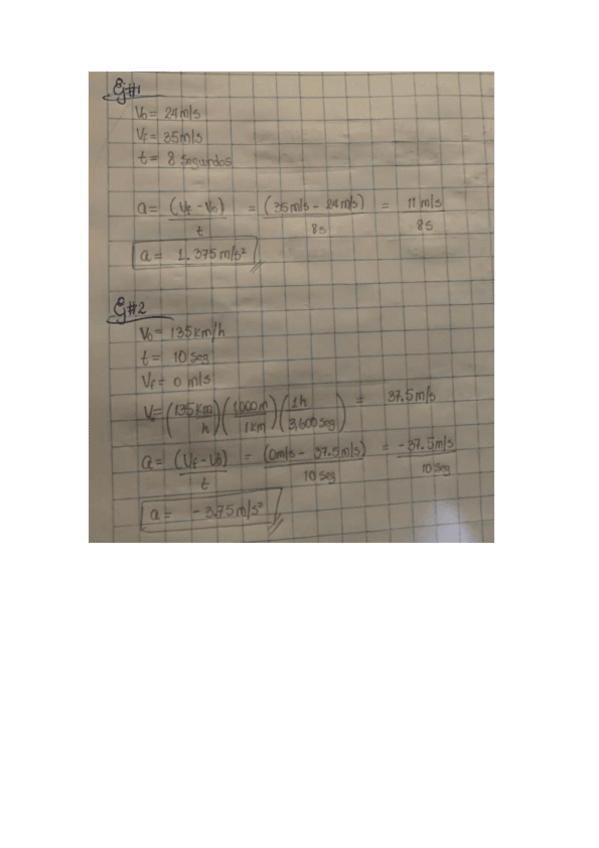 Ej#1
Vo= 24m/s
Vf= 35m/s
t= 8 segundos
a= (Vf - Vo) / t = (35m/s - 24m/s) / 8s = 11 m/s / 8s
a= 1.375 m/s²
Ej#2
Vo= 135km/h
t= 10 seg
Vf= 0 m/s
Vo= (135km / h)(1000m / 1km)(1h / 3,600seg) = 37.5m/s
a= (Vf - Vo) / t = (0m/s - 37.5m/s) / 10 seg = -37.5m/s / 10 seg
a= -3.75m/s²